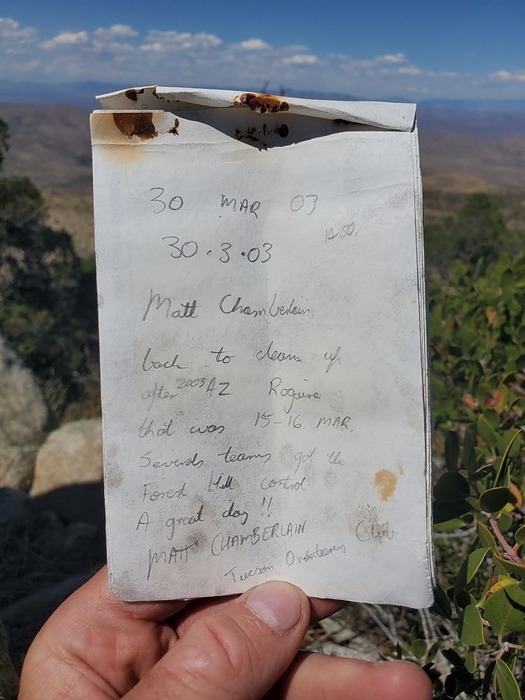 30 MAR 03
30.3.03
Matt Chamberlain
back to clean up
after 2003 AZ Rogaine
that was 15-16 MAR.
Several teams got the
Forest Hill control
A great day !!
MATT CHAMBERLAIN
Tucson Orienteering Club